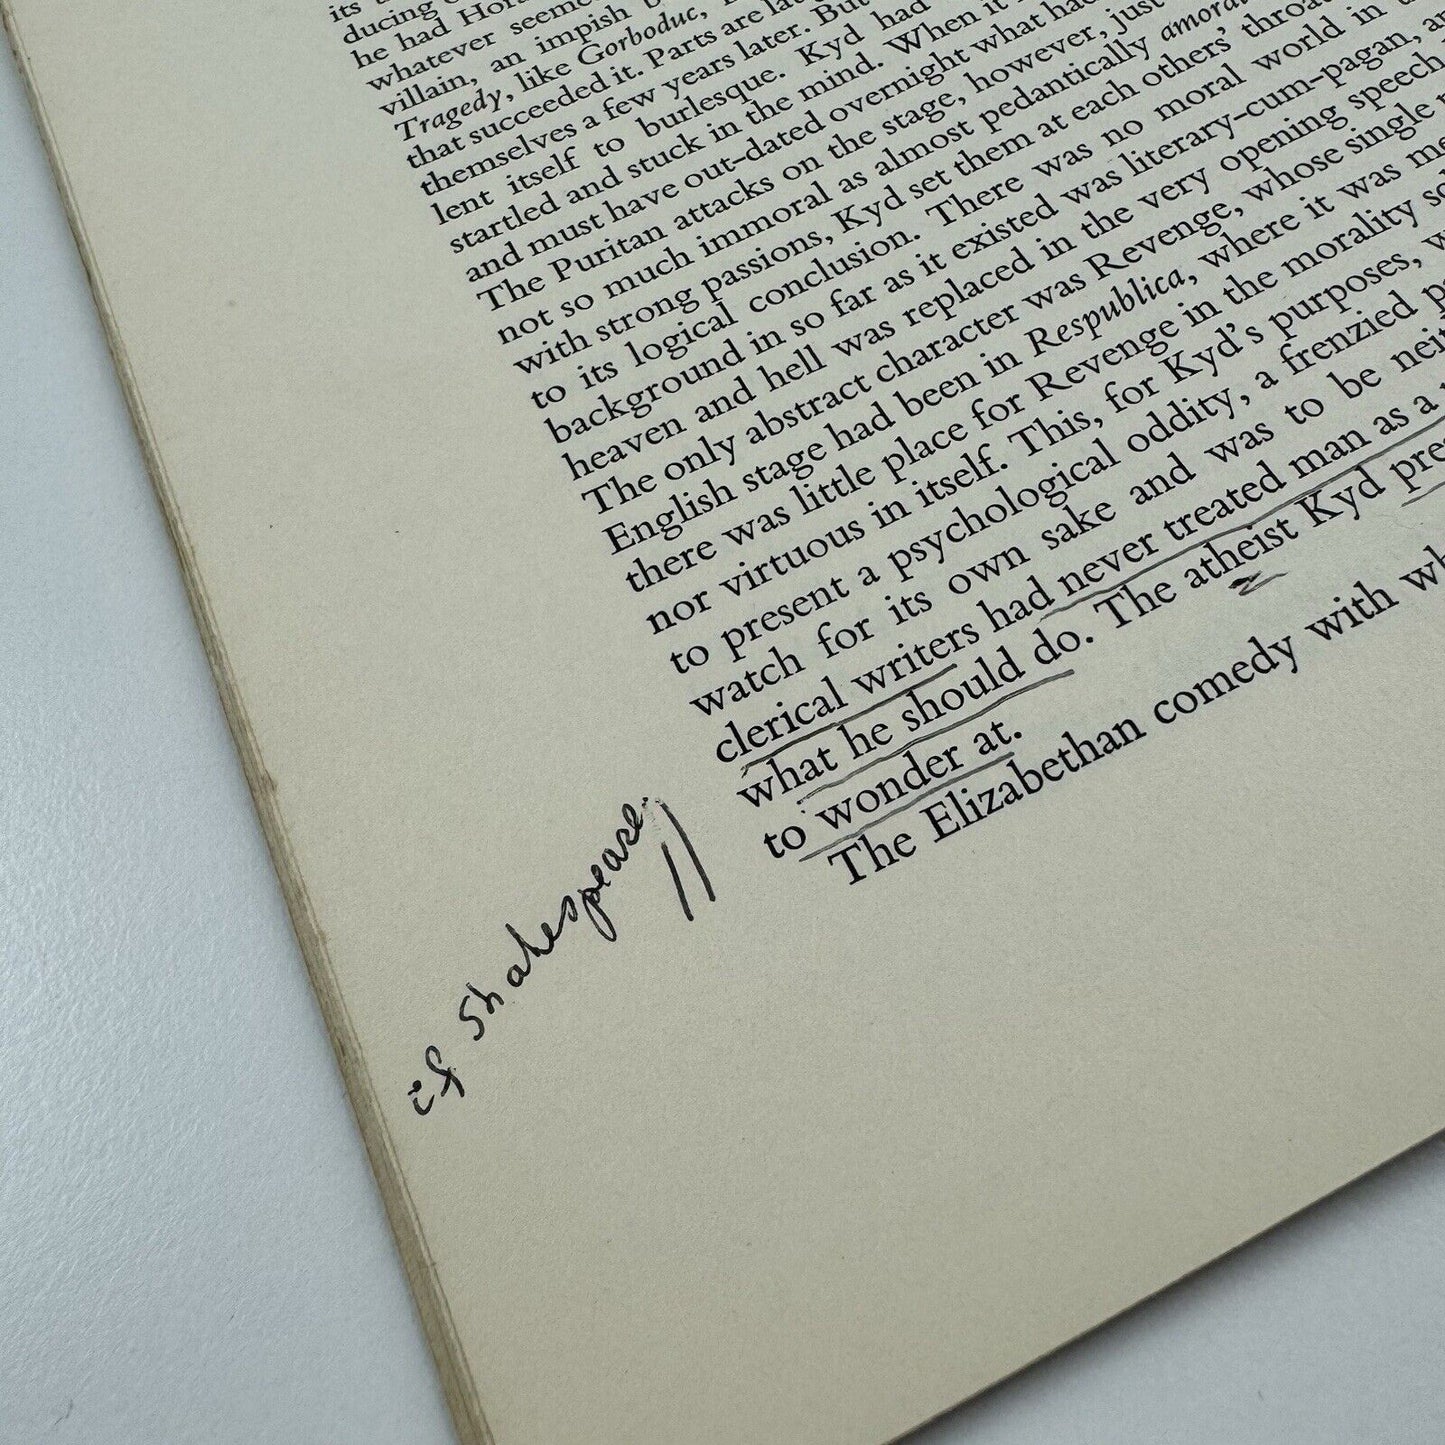 its
ducing
he had
whatever seemed
villain, an impish
Tragedy, like Gorboduc,
that succeeded it. Parts are
themselves a few years later. But
lent itself to burlesque. Kyd had
startled and stuck in the mind. When it
and must have out-dated overnight what had
The Puritan attacks on the stage, however, just
not so much immoral as almost pedantically
with strong passions, Kyd set them at each others'
to its logical conclusion. There was no moral world in
background in so far as it existed was literary-cum-pagan,
heaven and hell was replaced in the very opening speech
The only abstract character was Revenge, whose single
English stage had been in Respublica, where it was
there was little place for Revenge in the morality
nor virtuous in itself. This, for Kyd's purposes,
to present a psychological oddity, a frenzied
watch for its own sake and was to be
clerical writers had never treated man as a
what he should do. The atheist Kyd
to wonder at.
The Elizabethan comedy with
if Shakespeare.